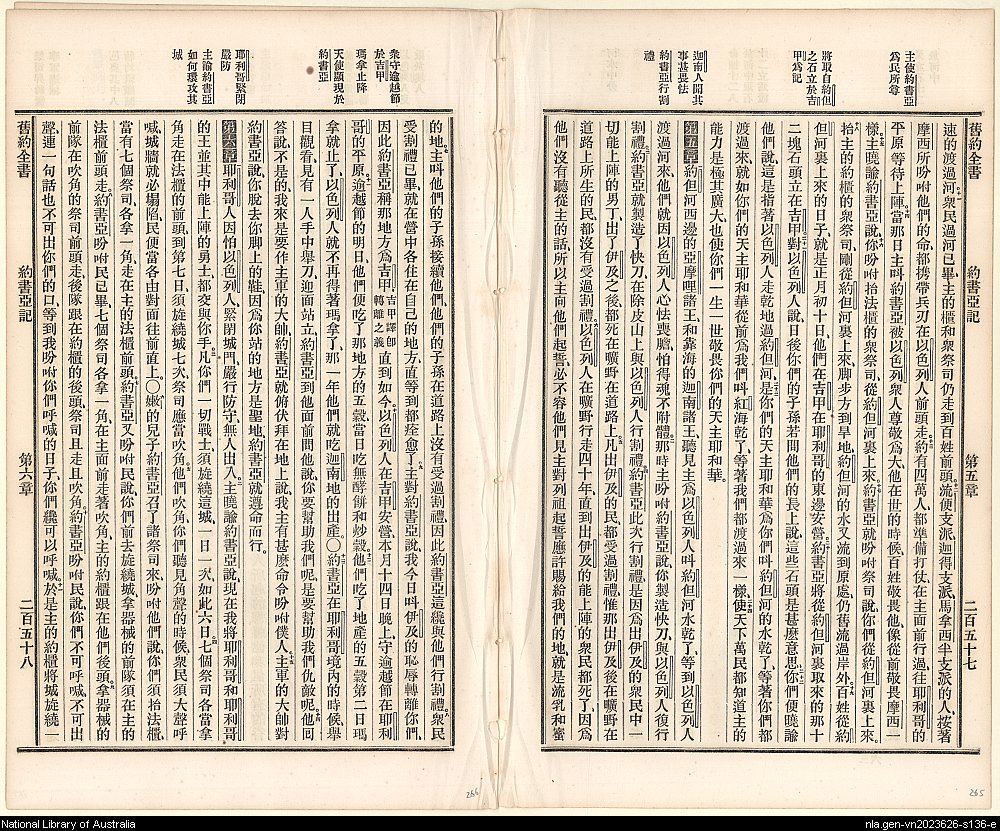 舊約全書　約書亞記　第五章　二百五十七
主使約書亞
爲民所尊
將取自約但
之石立於吉
甲爲記
迦南人聞其
事甚畏怯
約書亞行割
禮
速的渡過河衆民過河已畢主的櫃和衆祭司仍走到百姓前頭流便支派迦得支派馬拿西半支派的人按著
摩西所吩咐他們的命都攜帶兵刃在以色列人前頭走約有四萬人都準備打仗在主面前行過往耶利哥的
平原等待上陣當那日主叫約書亞被以色列衆人尊敬爲大他在世的時候百姓敬畏他像從前敬畏摩西一
樣主曉諭約書亞說你吩咐抬法櫃的衆祭司從約但河裏上來約書亞就吩咐祭司說你們從約但河裏上來
抬主的約櫃的衆祭司剛從約但河裏上來脚步方到旱地約但河的水又流到原處仍舊流過岸外百姓從約
但河裏上來的日子就是正月初十日他們在吉甲在耶利哥的東邊安營約書亞將從約但河裏取來的那十
二塊石頭立在吉甲對以色列人說日後你們的子孫若問他們的長上說這些石頭是甚麼意思你們便曉諭
他們說這是指著以色列人走乾地過約但河是你們的天主耶和華爲你們叫約但河的水乾了等著你們都
渡過來就如你們的天主耶和華從前爲我們叫紅海乾了等著我們都渡過來一樣使天下萬民都知道主的
能力是極其廣大也使你們一生一世敬畏你們的天主耶和華
第五章約但河西邊的亞摩哩諸王和靠海的迦南諸王聽見主爲以色列人叫約但河水乾了等到以色列人
渡過河來他們就因以色列人心怯喪膽怕得魂不附體那時主吩咐約書亞說你製造快刀與以色列人復行
割禮約書亞就製造了快刀在除皮山上與以色列人行割禮約書亞此次行割禮是因爲出伊及的衆民中一
切能上陣的男丁出了伊及之後都死在曠野在道路上凡出伊及的民都受過割禮惟那出伊及後在曠野在
道路上所生的民都沒有受過割禮以色列人在曠野行走四十年直到出伊及的能上陣的衆民都死了因爲
他們沒有聽從主的話所以主向他們起誓必不容他們見主對列祖起誓應許賜給我們的地就是流乳和蜜
衆守逾越節
於吉甲
瑪拿止降
天使顯現於
約書亞
耶利哥緊閉
嚴防
主諭約書亞
如何環攻其
城
的地主叫他們的子孫接續他們他們的子孫在道路上沒有受過割禮因此約書亞這纔與他們行割禮衆民
受割禮已畢就在營中各住在自己的地方直等到都痊愈了主對約書亞說我今日叫伊及的恥辱轉離你們
因此約書亞稱那地方爲吉甲吉甲譯即轉離之義直到如今以色列人在吉甲安營本月十四日晚上守逾越節在耶利
哥的平原逾越節的明日他們便吃了那地方的五穀當日吃無酵餅和炒穀他們吃了地產的五穀第二日瑪
拿就止了以色列人就不再得著瑪拿了那一年他們就吃迦南地的出產〇約書亞在耶利哥境內的時候舉
目觀看見有一人手中舉刀迎面站立約書亞到他面前問他說你要幫助我們呢是要幫助我們仇敵呢他回
答說不是的我來是要作主軍的大帥約書亞就俯伏拜在地上說我主有甚麼命令吩咐僕人主軍的大帥對
約書亞說你脫去你脚上的鞋因爲你站的地方是聖地約書亞就遵命而行
第六章耶利哥人因怕以色列人緊閉城門嚴行防守無人出入主曉諭約書亞說現在我將耶利哥和耶利哥
的王並其中能上陣的勇士都交與你手凡你們一切戰士須旋繞這城一日一次如此六日七個祭司各當拿
角走在法櫃的前頭到第七日須旋繞城七次祭司應當吹角他們吹角你們聽見角聲的時候衆民須大聲呼
喊城牆就必塌陷民便當各由對面往前直上〇嫩的兒子約書亞召了諸祭司來吩咐他們說你們須抬法櫃
當有七個祭司各拿一角走在主的法櫃前頭約書亞又吩咐民說你們前去旋繞城拿器械的前隊須在主的
法櫃前頭走約書亞吩咐民已畢七個祭司各拿一角在主面前走著吹角主的約櫃跟在他們後頭拿器械的
前隊在吹角的祭司前頭走後隊跟在約櫃的後頭祭司且走且吹角約書亞吩咐民說你們不可呼喊不可出
聲連一句話也不可出你們的口等到我吩咐你們呼喊的日子你們纔可以呼喊於是主的約櫃將城旋繞一
舊約全書　約書亞記　第六章　二百五十八
266
265
National Library of Australia
nla.gen-vn2023626-s136-e